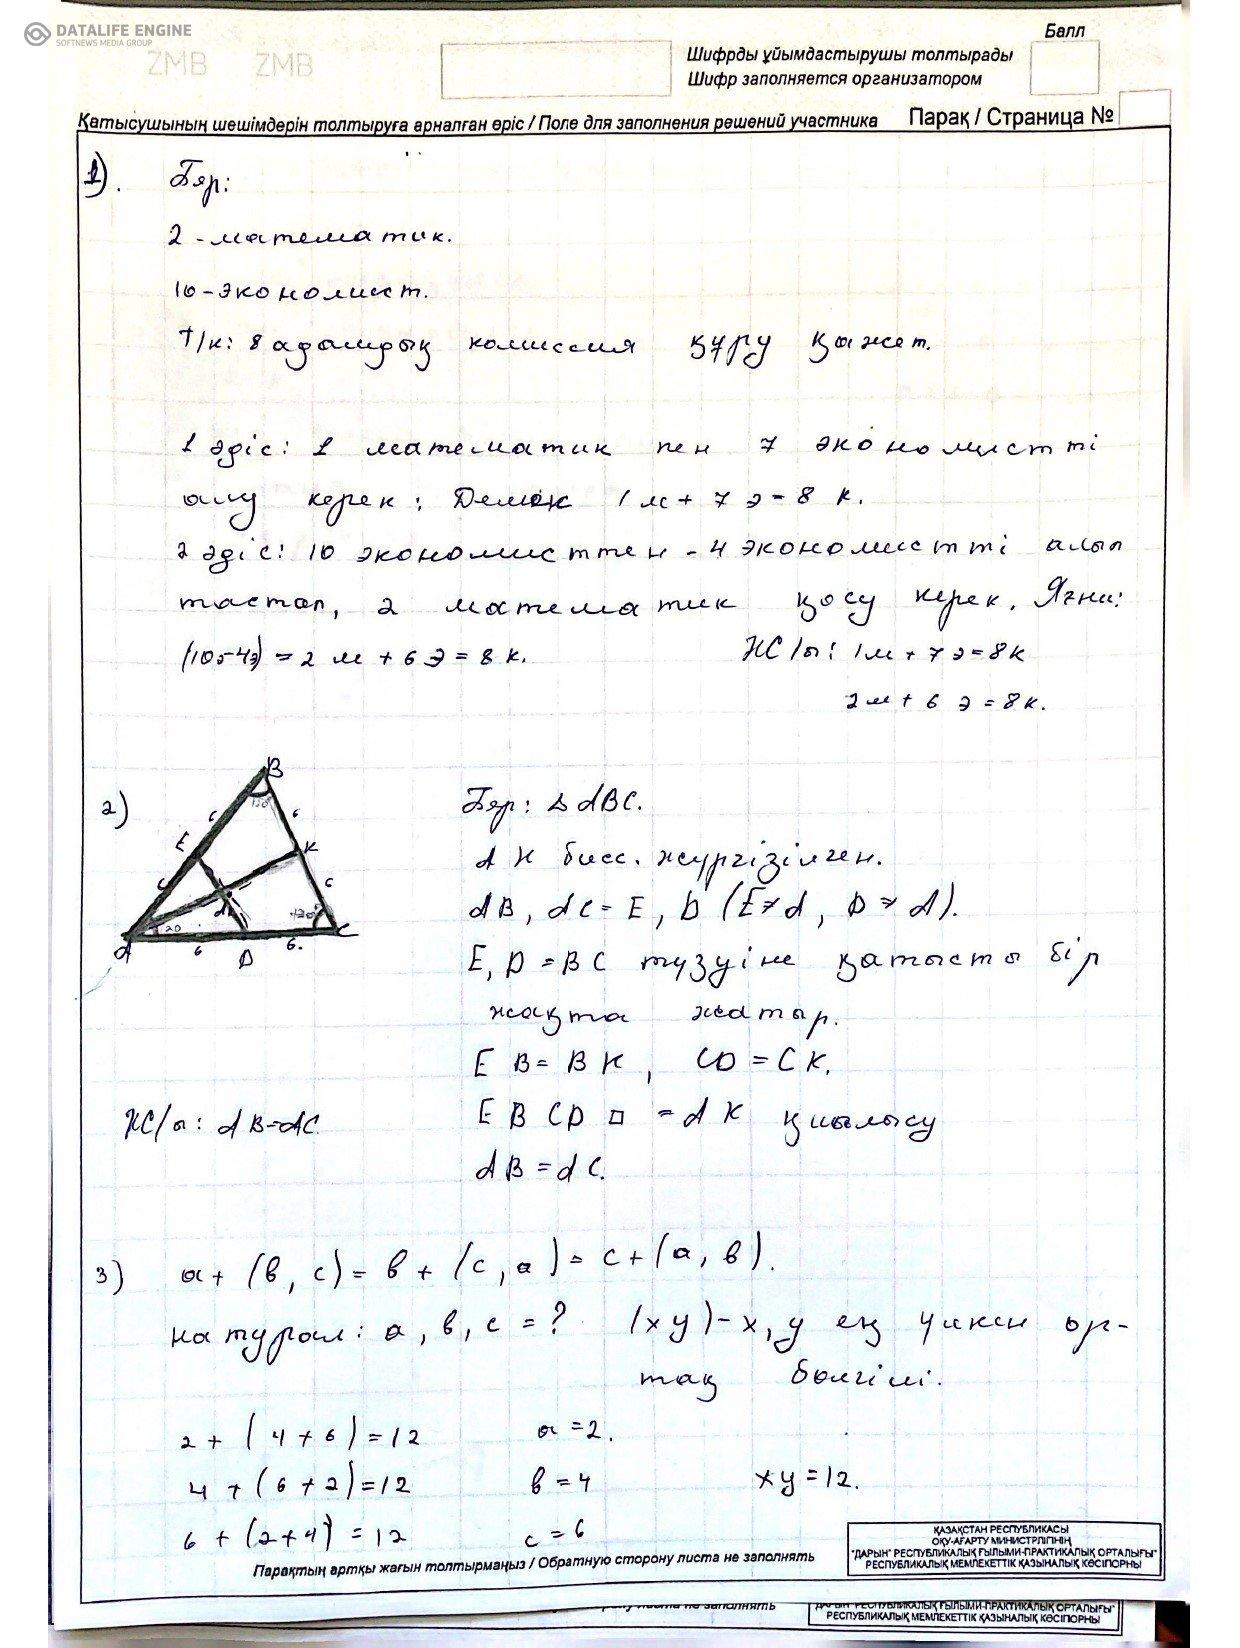 DATALIFE ENGINE
SOFTNEWS MEDIA GROUP
ZMB ZMB
Балл
Шифрды ұйымдастырушы толтырады
Шифр заполняется организатором
Қатысушының шешімдерін толтыруға арналған өріс / Поле для заполнения решений участника
Парақ / Страница №
1).
Бер:
2 - математик.
10 - экономист.
Т/к: 8 адамдық комиссия құру қажет.
1 әдіс: 1 математик пен 7 экономистті
алу керек; Демек 1 м + 7 э = 8 к.
2 әдіс: 10 экономисттен - 4 экономистті алып
тастап, 2 математик қосу керек. Яғни:
(10э-4э) = 2 м + 6 э = 8 к.
Ж/ы: 1м + 7э = 8к
2м + 6 э = 8к.
2)
B
E
K
A
D
C
6
6
6
6
6.
Бер: ∆ ABC.
AK бисс. жүргізілген.
AB, AC = E, D (E≠A, D≠A).
E, D = BC түзуіне қатысты бір
жақта жатыр.
EB = BK, CD = CK.
EBCD □ = AK қиылысу
AB = AC.
Ж/ы: AB=AC
3)
a + (b, c) = b + (c, a) = c + (a, b).
натурал: a, b, c = ? (xy) - x, y ең үлкен ор-
тақ бөлгіші.
2 + (4 + 6) = 12
a = 2.
4 + (6 + 2) = 12
b = 4
xy = 12.
6 + (2+4) = 12
c = 6
Парақтың артқы жағын толтырмаңыз / Обратную сторону листа не заполнять
ҚАЗАҚСТАН РЕСПУБЛИКАСЫ
ОҚУ-АҒАРТУ МИНИСТРЛІГІНІҢ
"ДАРЫН" РЕСПУБЛИКАЛЫҚ ҒЫЛЫМИ-ПРАКТИКАЛЫҚ ОРТАЛЫҒЫ"
РЕСПУБЛИКАЛЫҚ МЕМЛЕКЕТТІК ҚАЗЫНАЛЫҚ КӘСІПОРНЫ
листа не заполнять
"ДАРЫН" РЕСПУБЛИКАЛЫҚ ҒЫЛЫМИ-ПРАКТИКАЛЫҚ ОРТАЛЫҒЫ"
РЕСПУБЛИКАЛЫҚ МЕМЛЕКЕТТІК ҚАЗЫНАЛЫҚ КӘСІПОРНЫ